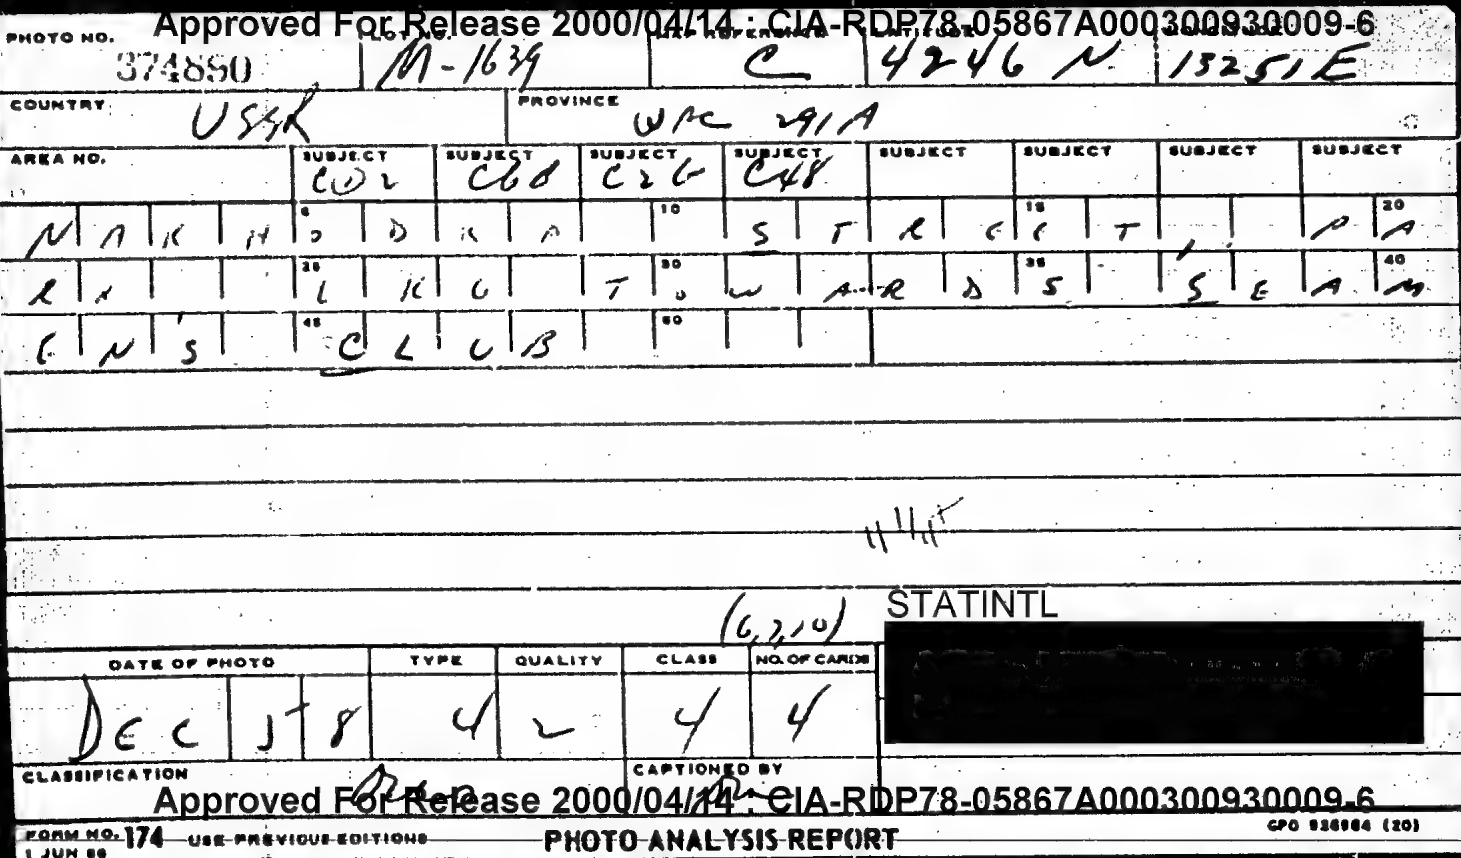 Approved For Release 2000/04/14 : CIA-RDP78-05867A000300930009-6
PHOTO NO. 374880 M-1639 C 4246 N. 13251E
COUNTRY USSR PROVINCE WAC 291A
AREA NO. SUBJECT C02 SUBJECT C60 SUBJECT C26 SUBJECT C48 SUBJECT SUBJECT SUBJECT SUBJECT
NAKHODKA STREET, PA
RK LKG TOWARDS SEAM
ENS' CLUB
(6,7,10)
STATINTL
DATE OF PHOTO TYPE QUALITY CLASS NO. OF CARDS
DEC 58 4 2 4 4
CLASSIFICATION CAPTIONED BY
Approved For Release 2000/04/14 : CIA-RDP78-05867A000300930009-6
FORM NO. 174 USE PREVIOUS EDITIONS PHOTO ANALYSIS REPORT GPO 936984 (20)
1 JUN